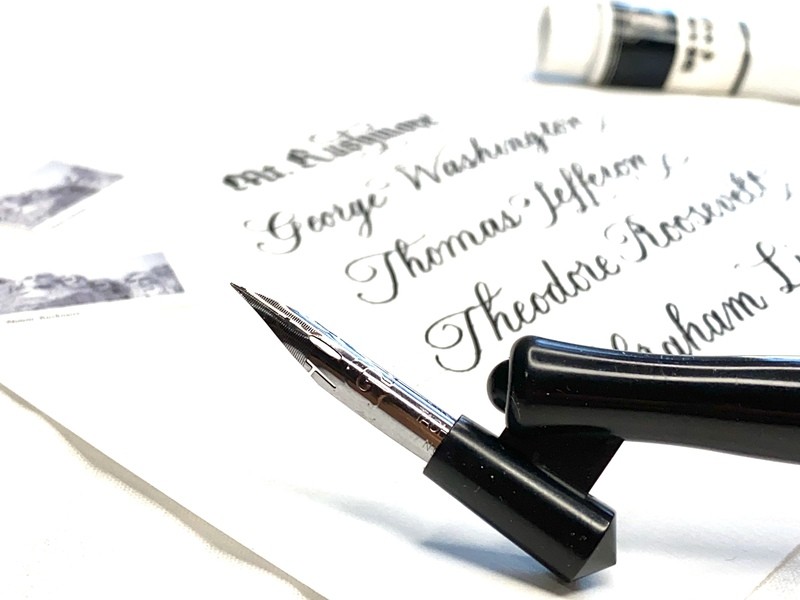 Mt. Rushmore
George Washington,
Thomas Jefferson,
Theodore Roosevelt,
Mount Rushmore